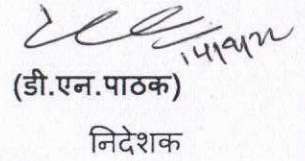 (डी.एन.पाठक)
निदेशक